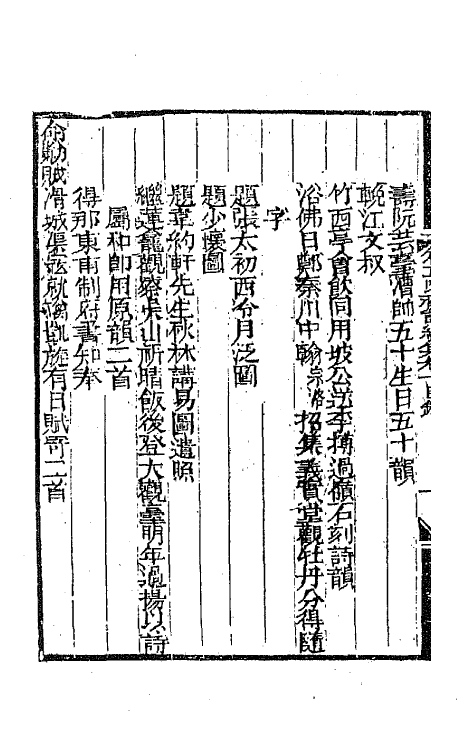 壽阮芸臺漕帥五十生日五十韻
輓江文叔
竹西亭會飲同用坡公送李搏過嶺石刻詩韻
浴佛日鄭秦川中翰宗洛招集義貫堂觀牡丹分得隨
字
題張太初西泠月泛圖
題少襄圖
題韋約軒先生秋林講易圖遺照
繼蓮龕觀察吳山祈晴飯後登大觀臺明年過揚以詩
屬和即用原韻二首
得那東甫制府書却奉
俞勛賊滑城渠逆就禽凱旋有日賦寄二首